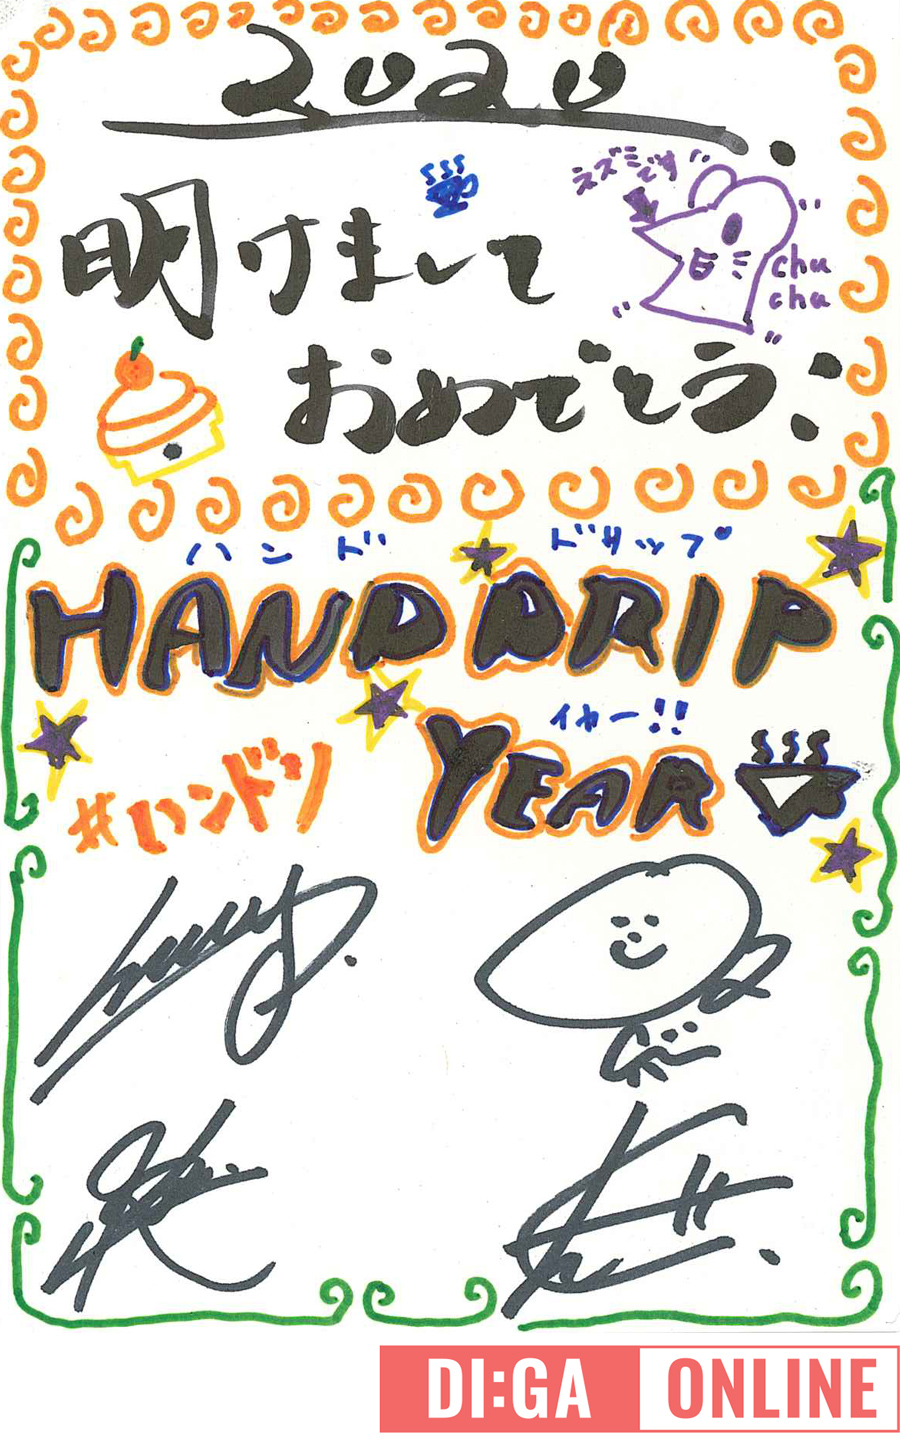 2020.
ネズミです
明けまして
chu
chu
おめでとう.
ハンド ドリップ
HAND DRIP
イヤー!!
YEAR
#ハンドリ
DI:GA ONLINE